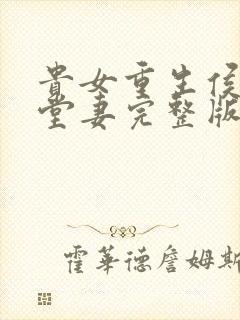 貴女重生侯
堂妻完整版
霍華德詹姆斯